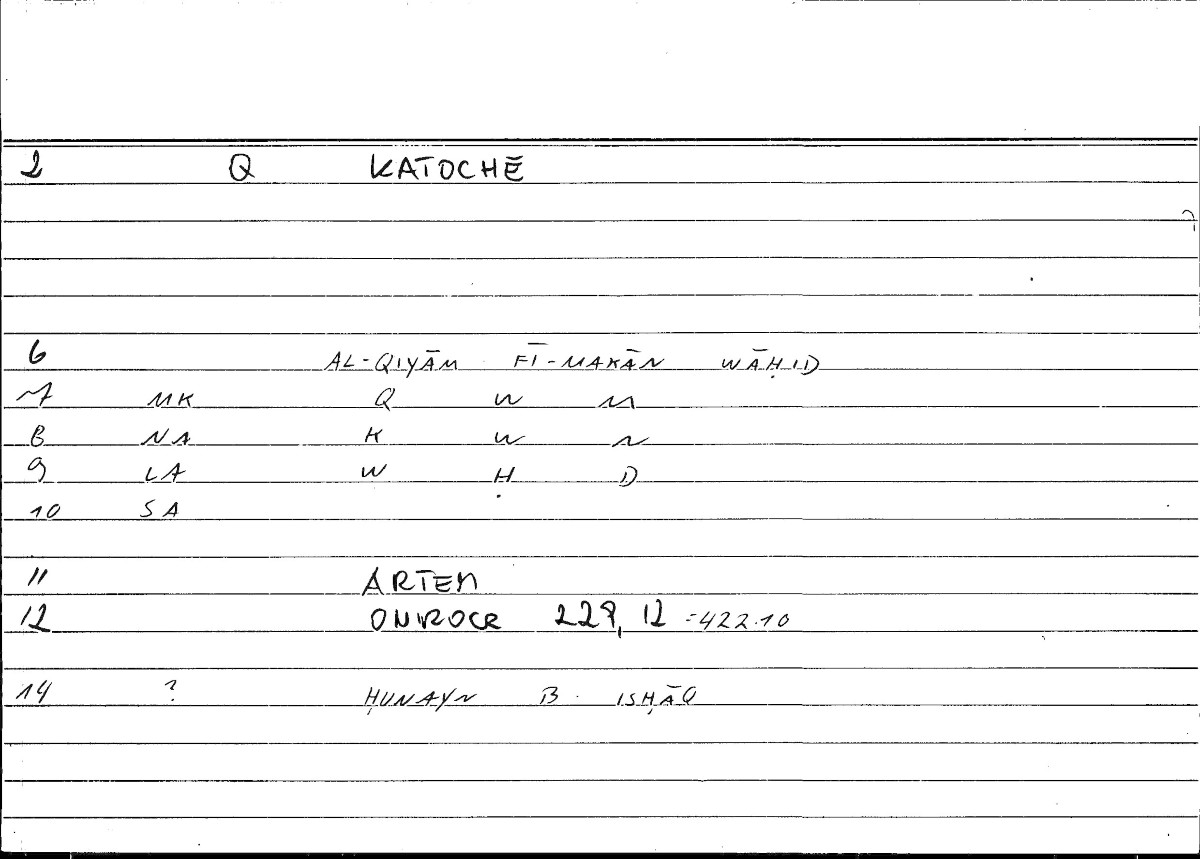 2 Q KATOCHĒ
6 AL-QIYĀM FĪ-MAKĀN WĀḤID
7 MK Q W M
8 NA K W N
9 LA W Ḥ D
10 SA
11 ARTEM
12 ONIROCR 229, 12 =422.10
14 ? ḤUNAYN B. ISḤĀQ